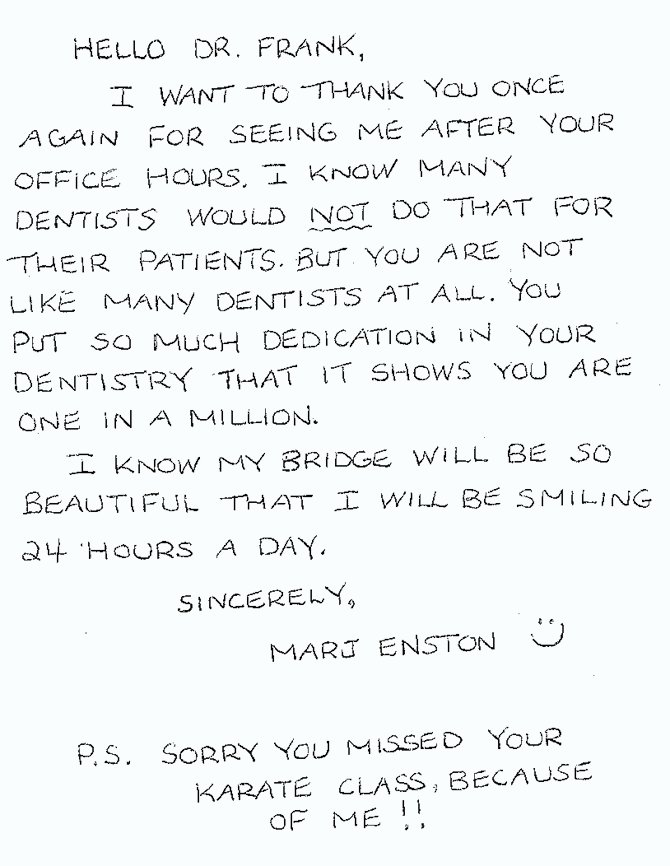 HELLO DR. FRANK,
I WANT TO THANK YOU ONCE
AGAIN FOR SEEING ME AFTER YOUR
OFFICE HOURS. I KNOW MANY
DENTISTS WOULD NOT DO THAT FOR
THEIR PATIENTS. BUT YOU ARE NOT
LIKE MANY DENTISTS AT ALL. YOU
PUT SO MUCH DEDICATION IN YOUR
DENTISTRY THAT IT SHOWS YOU ARE
ONE IN A MILLION.
I KNOW MY BRIDGE WILL BE SO
BEAUTIFUL THAT I WILL BE SMILING
24 HOURS A DAY.
SINCERELY,
MARJ ENSTON
P.S. SORRY YOU MISSED YOUR
KARATE CLASS, BECAUSE
OF ME !!